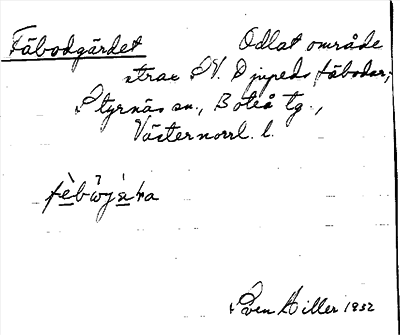 Fäbodgärdet Odlat område
strax SV. Djupeds fäbodar,
Styrnäs sn., Boteå tg.,
Västernorrl. l.
Sven Hiller 1932